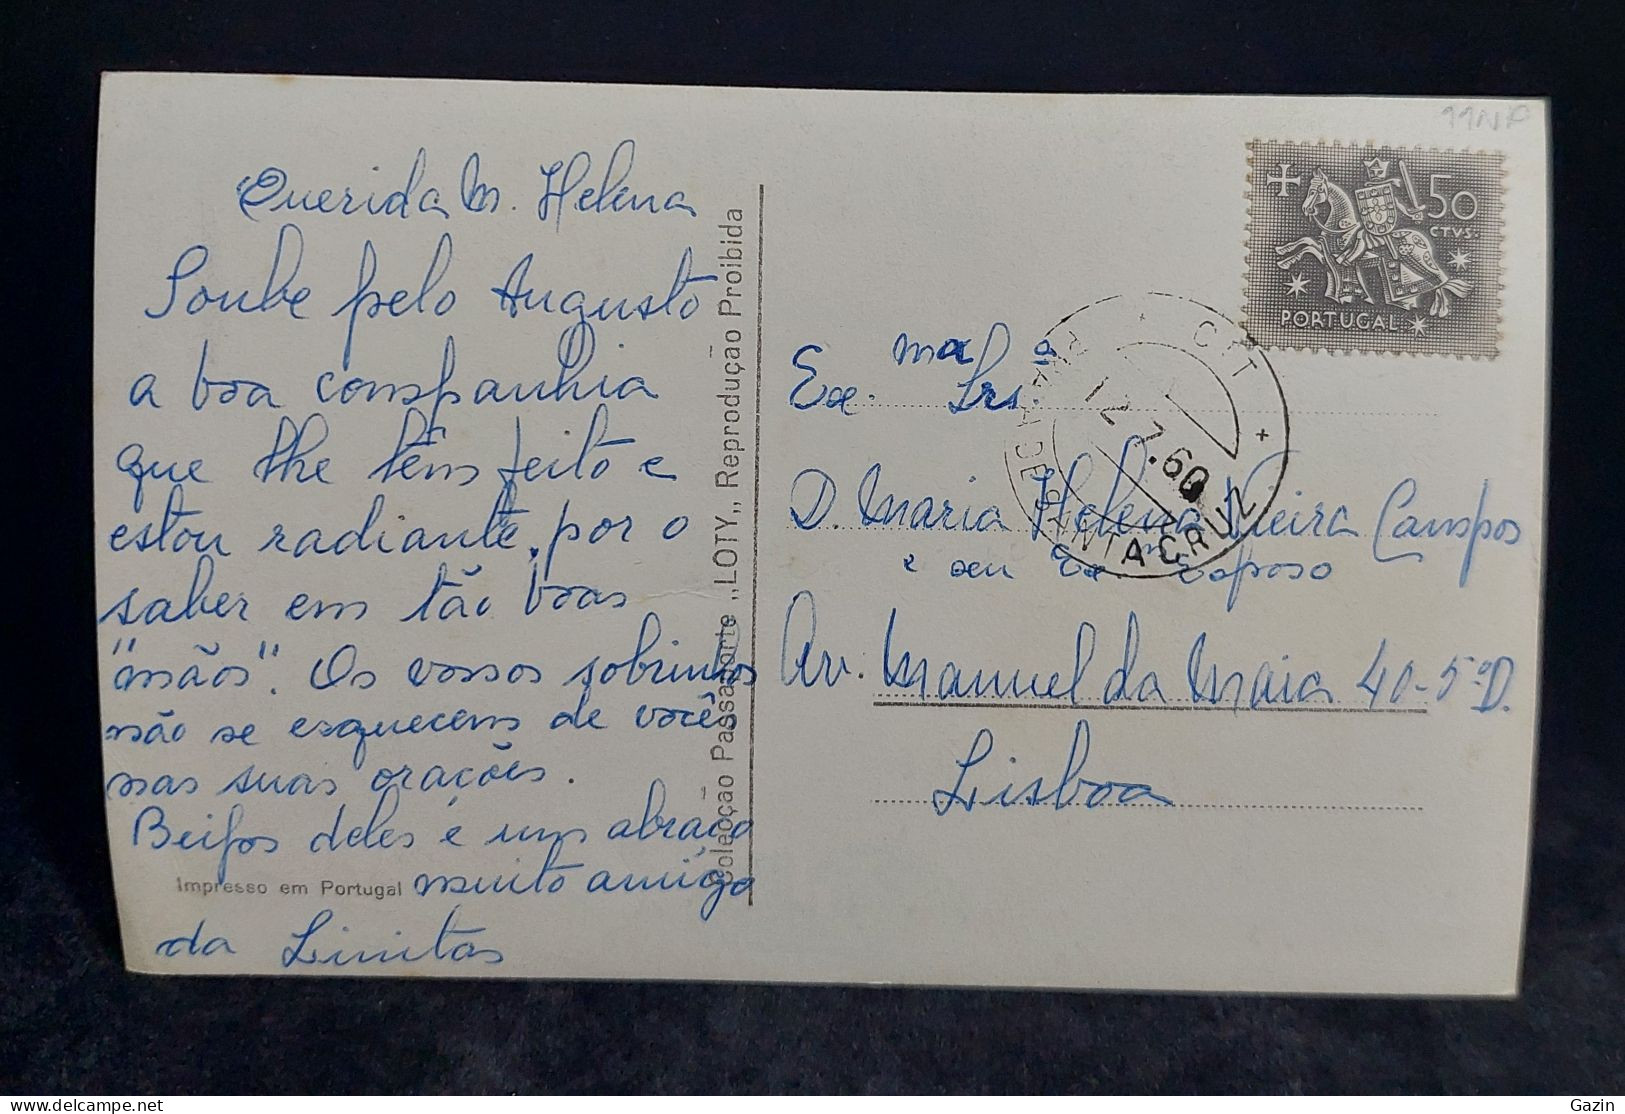 Querida M. Helena
Soube pelo Augusto
a boa companhia
que lhe têm feito e
estou radiante, por o
saber em tão boas
"mãos". Os vossos sobrinhos
não se esquecem de vocês
nas suas orações.
Beijos deles e um abraço
muito amigo
da Linitas
Impresso em Portugal
Colecção Passaporte „LOTY„ Reprodução Proibida
11NP
50
CTVS.
PORTUGAL
CTT
12.7.60
SANTA CRUZ
Ex.ma Srs.a
D. Maria Helena Vieira Campos
e seu Ex.m Esposo
Av. Manuel da Maia 40-5ºD.
Lisboa
Gazin